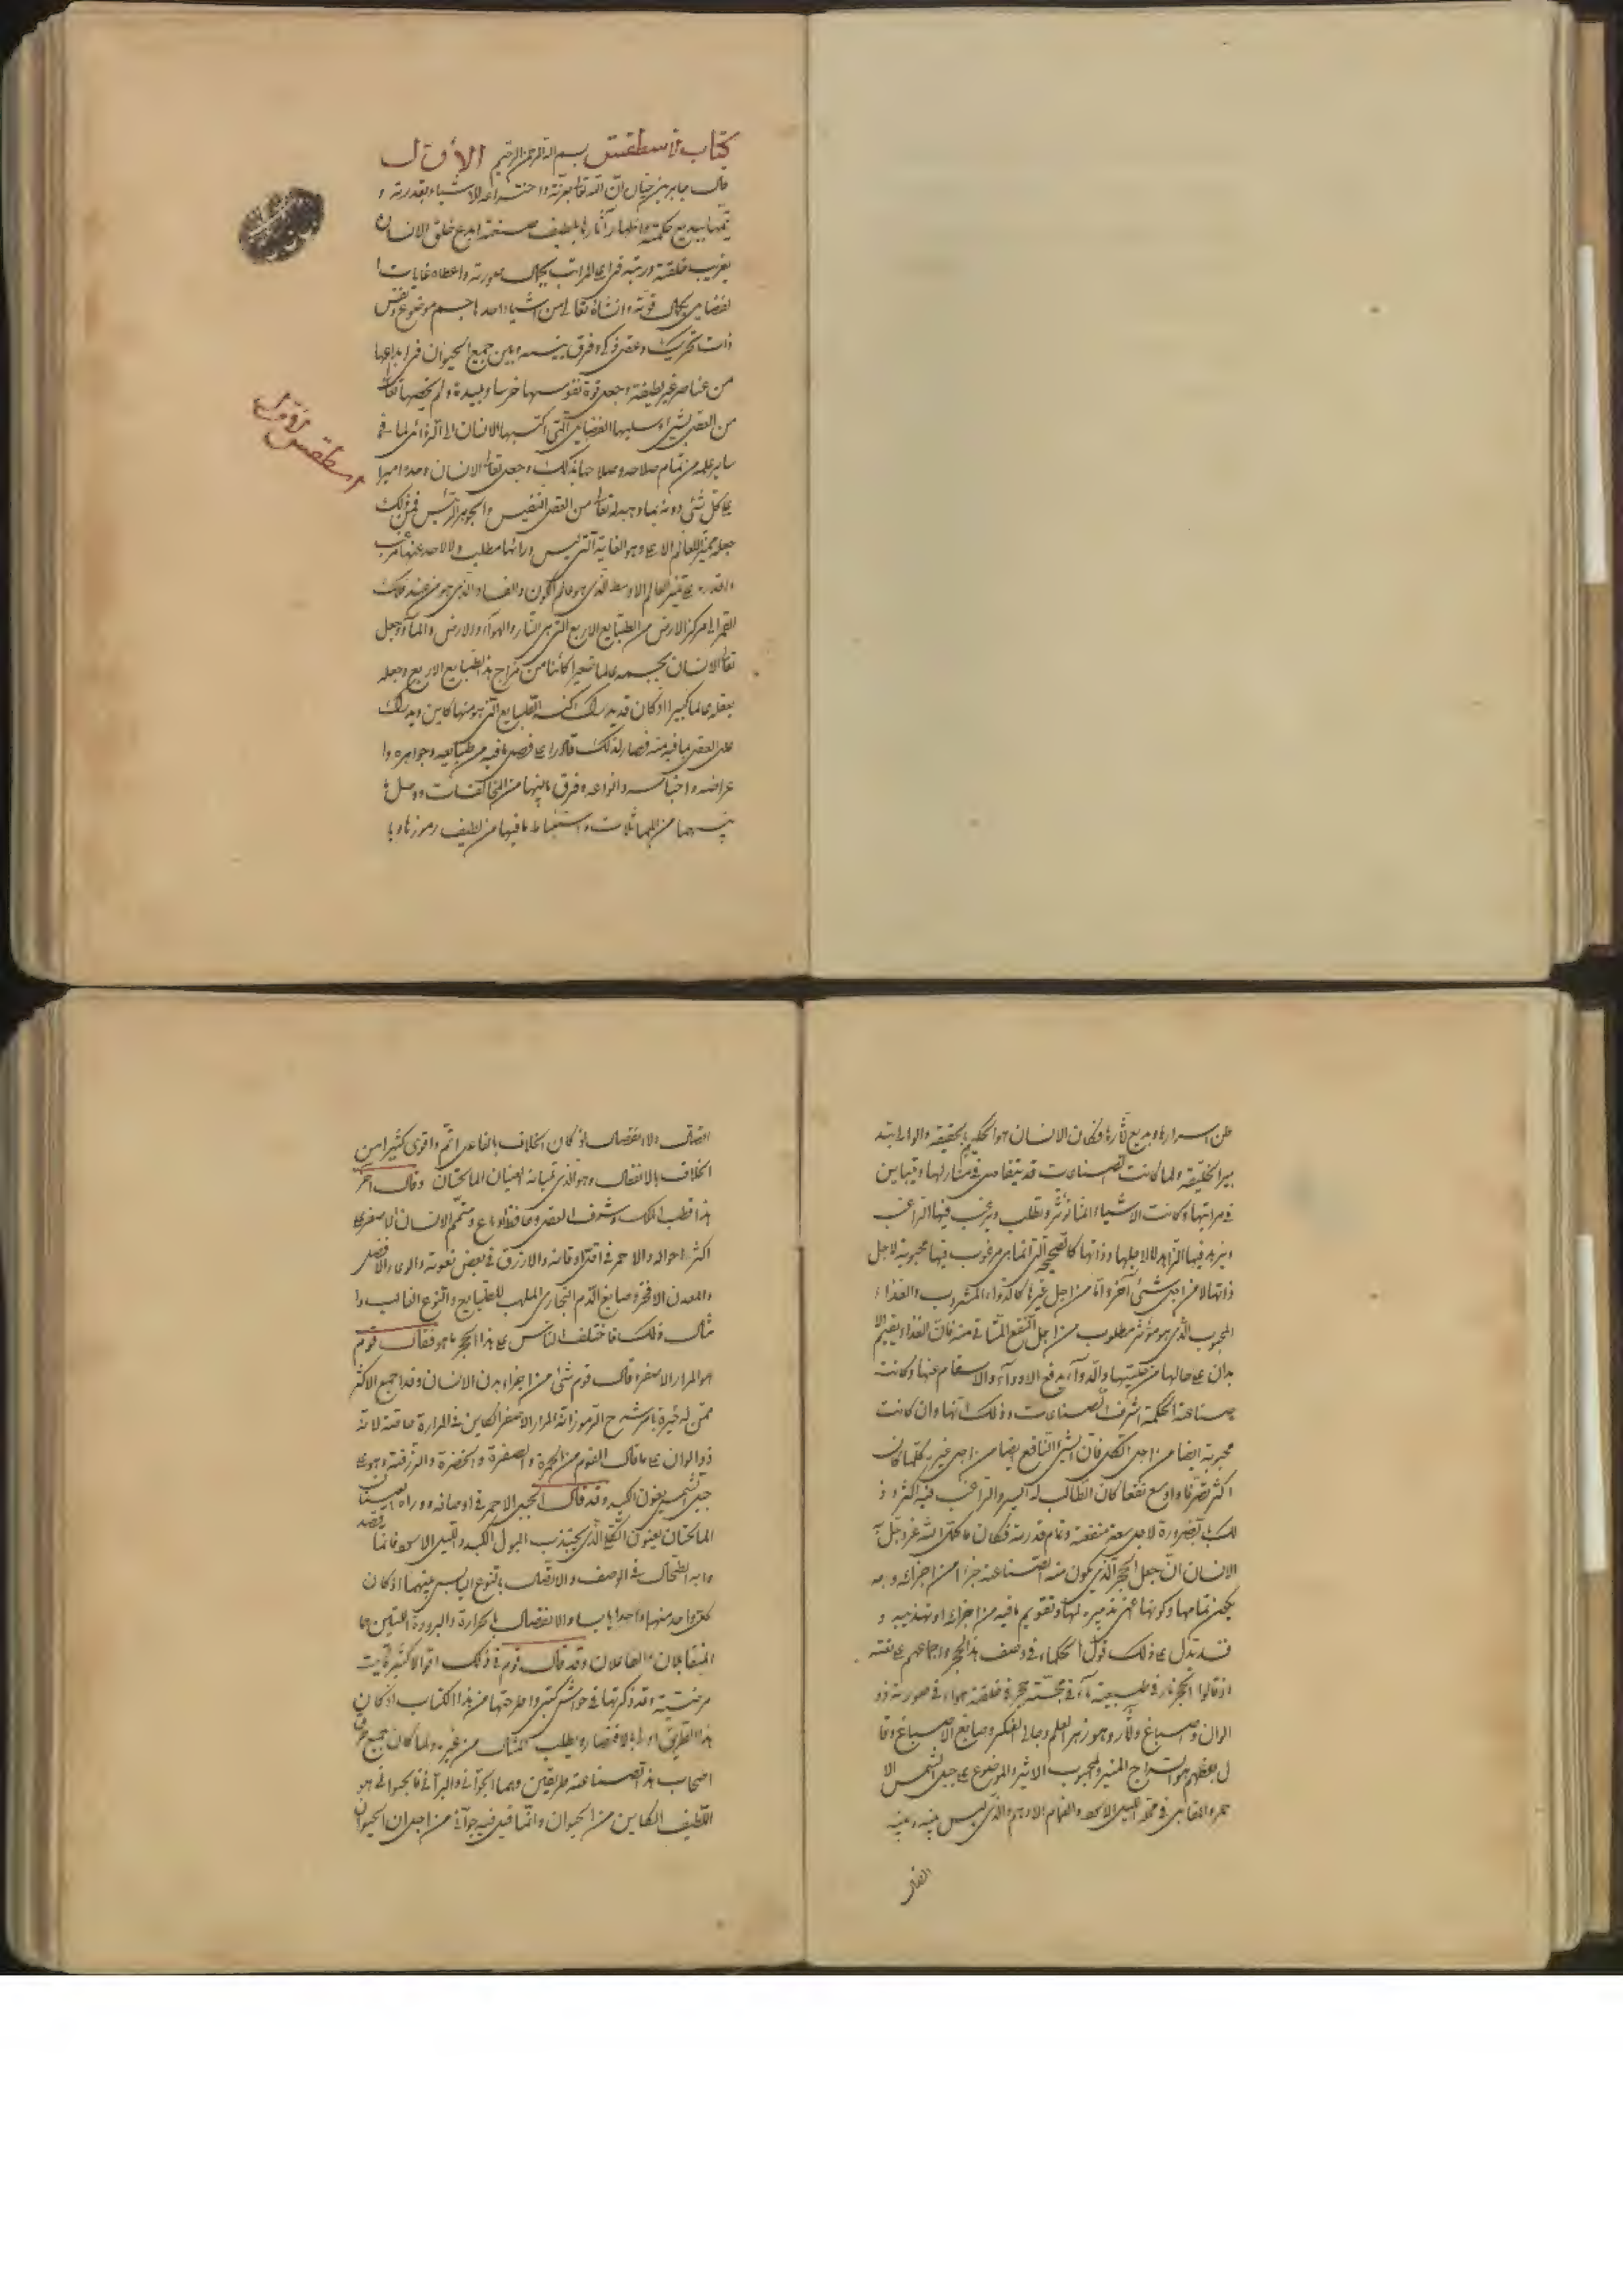 كتاب اسطقس بسم الله الرحمن الرحيم الأول
قال جابر بن حيان ان الله تعالى بعزته واختراعه الاشياء بقدرته و
حكمته واظهار آثارها بلطيف صنعته ابدع خلق الانسان
بغريب خلقته ورتبه في اعلى المراتب بكمال صورته واعطاه غايات ا
لفضايل بكمال قوته وانشأه تعالى من اشياء احدها جسم موضوع ونفس
ذات تحريك وعقل ذكي وفرق بينه وبين جميع الحيوان في ابداعها
من عناصر غير لطيفة وجعل قوة نفوسها خرسا وبليدة ولم يخصها تعالى
من العقل بشئ وسلبها الفضايل التي اكتسبها الانسان
من تمام صلاحه وصلاحها بذلك وجعل تعالى الانسان وحده اميرا
على كل شئ دونه بما وهبه له تعالى من العقل النفيس والجوهر الرئيس فمن ذلك
جعله للعالم الاعلى وهو الغاية التي ليس ورائها مطلب ولا لاحد عنها
واقدره على العالم الاوسط الذي هو عالم الكون والفساد الذي هو من عند فلك
القمر الى مركز الارض من الطبايع الاربع التي هي النار والهواء والارض والماء وجعل
تعالى الانسان بجسمه عالما صغيرا كائنا من مزاج هذه الطبايع الاربع وجعله
بعقله عالما كبيرا اذ كان قد يدرك الطبايع التي هو منها كاين ويدرك
العقل بما فيه منه فصار لذلك قادرا على فصل ما فيه من طبايعه وجواهره وا
عراضه واجناسه وانواعه وفرق ما بينها من المخالفات ووصل ما
بينهما من المماثلات واستنباط ما فيها من لطيف رموزها وبا
اسطقس الاول
طن اسرارها وبديع آثارها فكان الانسان هو الحكيم بالحقيقة والوالي بتد
بير الخليقة ولما كانت الصناعات قد تتفاضل في منازلها وتتباين
في مراتبها وكانت الاشياء انما تؤثر وتطلب ويرغب فيها الراغب
ويزهد فيها الزاهد اما لاجلها وذاتها كالصحة التي انما هي مرغوب فيها محبوبة لاجل
ذاتها لا من اجل شئ آخر واما من اجل غيرها كالدواء المشروب والغذاء
المحبوب الذي هو مؤثر مطلوب من اجل النفع المتأتي منه فان الغذاء يقيم الا
بدان على حالها من كليتها والدواء يدفع الادواء والاسقام عنها وكانت
صناعة الحكمة اشرف الصناعات وذلك انها وان كانت
محبوبة ايضا من اجل الكل فان الشئ النافع ايضا من اجل غيره كلما كان
اكثر تصرفا واوسع نفعا كان الطالب له اكثر والراغب فيه اكثر وذ
لك بالضرورة لاجل سعة منفعته وتمام قدرته فكان
الانسان ان جعل الحجر الذي يكون منه الصناعة جزأ من اجزائه وبه
يكون تمامها وكونها عن تدبيره لها وتقويم ما فيه من اجزائه وتهذيبه و
قد يدل على ذلك قول الحكماء في وصف هذا الحجر واجماعهم على نعته
اذ قالوا الحجر نار في طبيعته ماء في مجسته حجر في خلقته هواء في صورته ذو
الوان واصباغ وآثار وهو زهر العلم وجالي الفكر وصابغ الاصباغ وقا
ل بعضهم هو السراج المنير والمحبوب الاثير والموضوع على جبل الشمس الا
حمر والمقابل في محله الليل الاسود والغمام الادهم والذي ليس بينه وبينه
اتصال
اتصال ولا انفصال اذ كان الخلاف بالفاعل اتم واقوى كثيرا من
الخلاف بالانفعال وهو الذي العينان المالحتان وقال آخر
هذا قطب الملك وشرف العقل وحافظ الاوضاع ومتمم الانسان الاصفر في
اكثر احواله والاحمر في اقل اوقاته والازرق في بعض نعوته
والمعدن الافخر وصابغ الدم البخاري الملهب للطبايع والنوع الغالب وا
مثال ذلك فاختلف الناس في هذا الحجر ما هو فقال قوم
هو المرار الاصفر وقال قوم شئ من اجزاء بدن الانسان وقد اجمع الاكثر
ممن له خبرة بشرح الرموز انه المرار الاصفر الكاين في المرارة خاصة لانه
ذو الوان على ما قال القوم من الحمرة والصفرة والخضرة والزرقة وهو على
جبل الشمس يعنون الكبد وقد قال الجبل الاحمر في اوصافه ووراه العينان
المالحتان يعنون الكلى الذي يجتذب البول الكبد والليل الاسود فانما قصد
وا به الطحال في الوصف والاتصال بالنوع اليابس بينهما اذ كان
كل واحد منهما واحدا يابسا والانفصال بالحرارة والبرودة اللتين هما
المتقابلان الفاعلان وقد قال قوم في ذلك اقوالا كثيرة ليست
مرضية وقد ذكرتها في حواشي كتبي واطرحتها من هذا الكتاب اذ كان
هذا الطريق اولى بالاقتصار ويطلب المثال من غيره ولما كان جميع فرق
اصحاب هذه الصناعة طريقين وهما الجواني والبراني فالجواني هو
اللطيف الكاين من الحيوان وانما قيل فيه جواني من اجل ان الحيوان